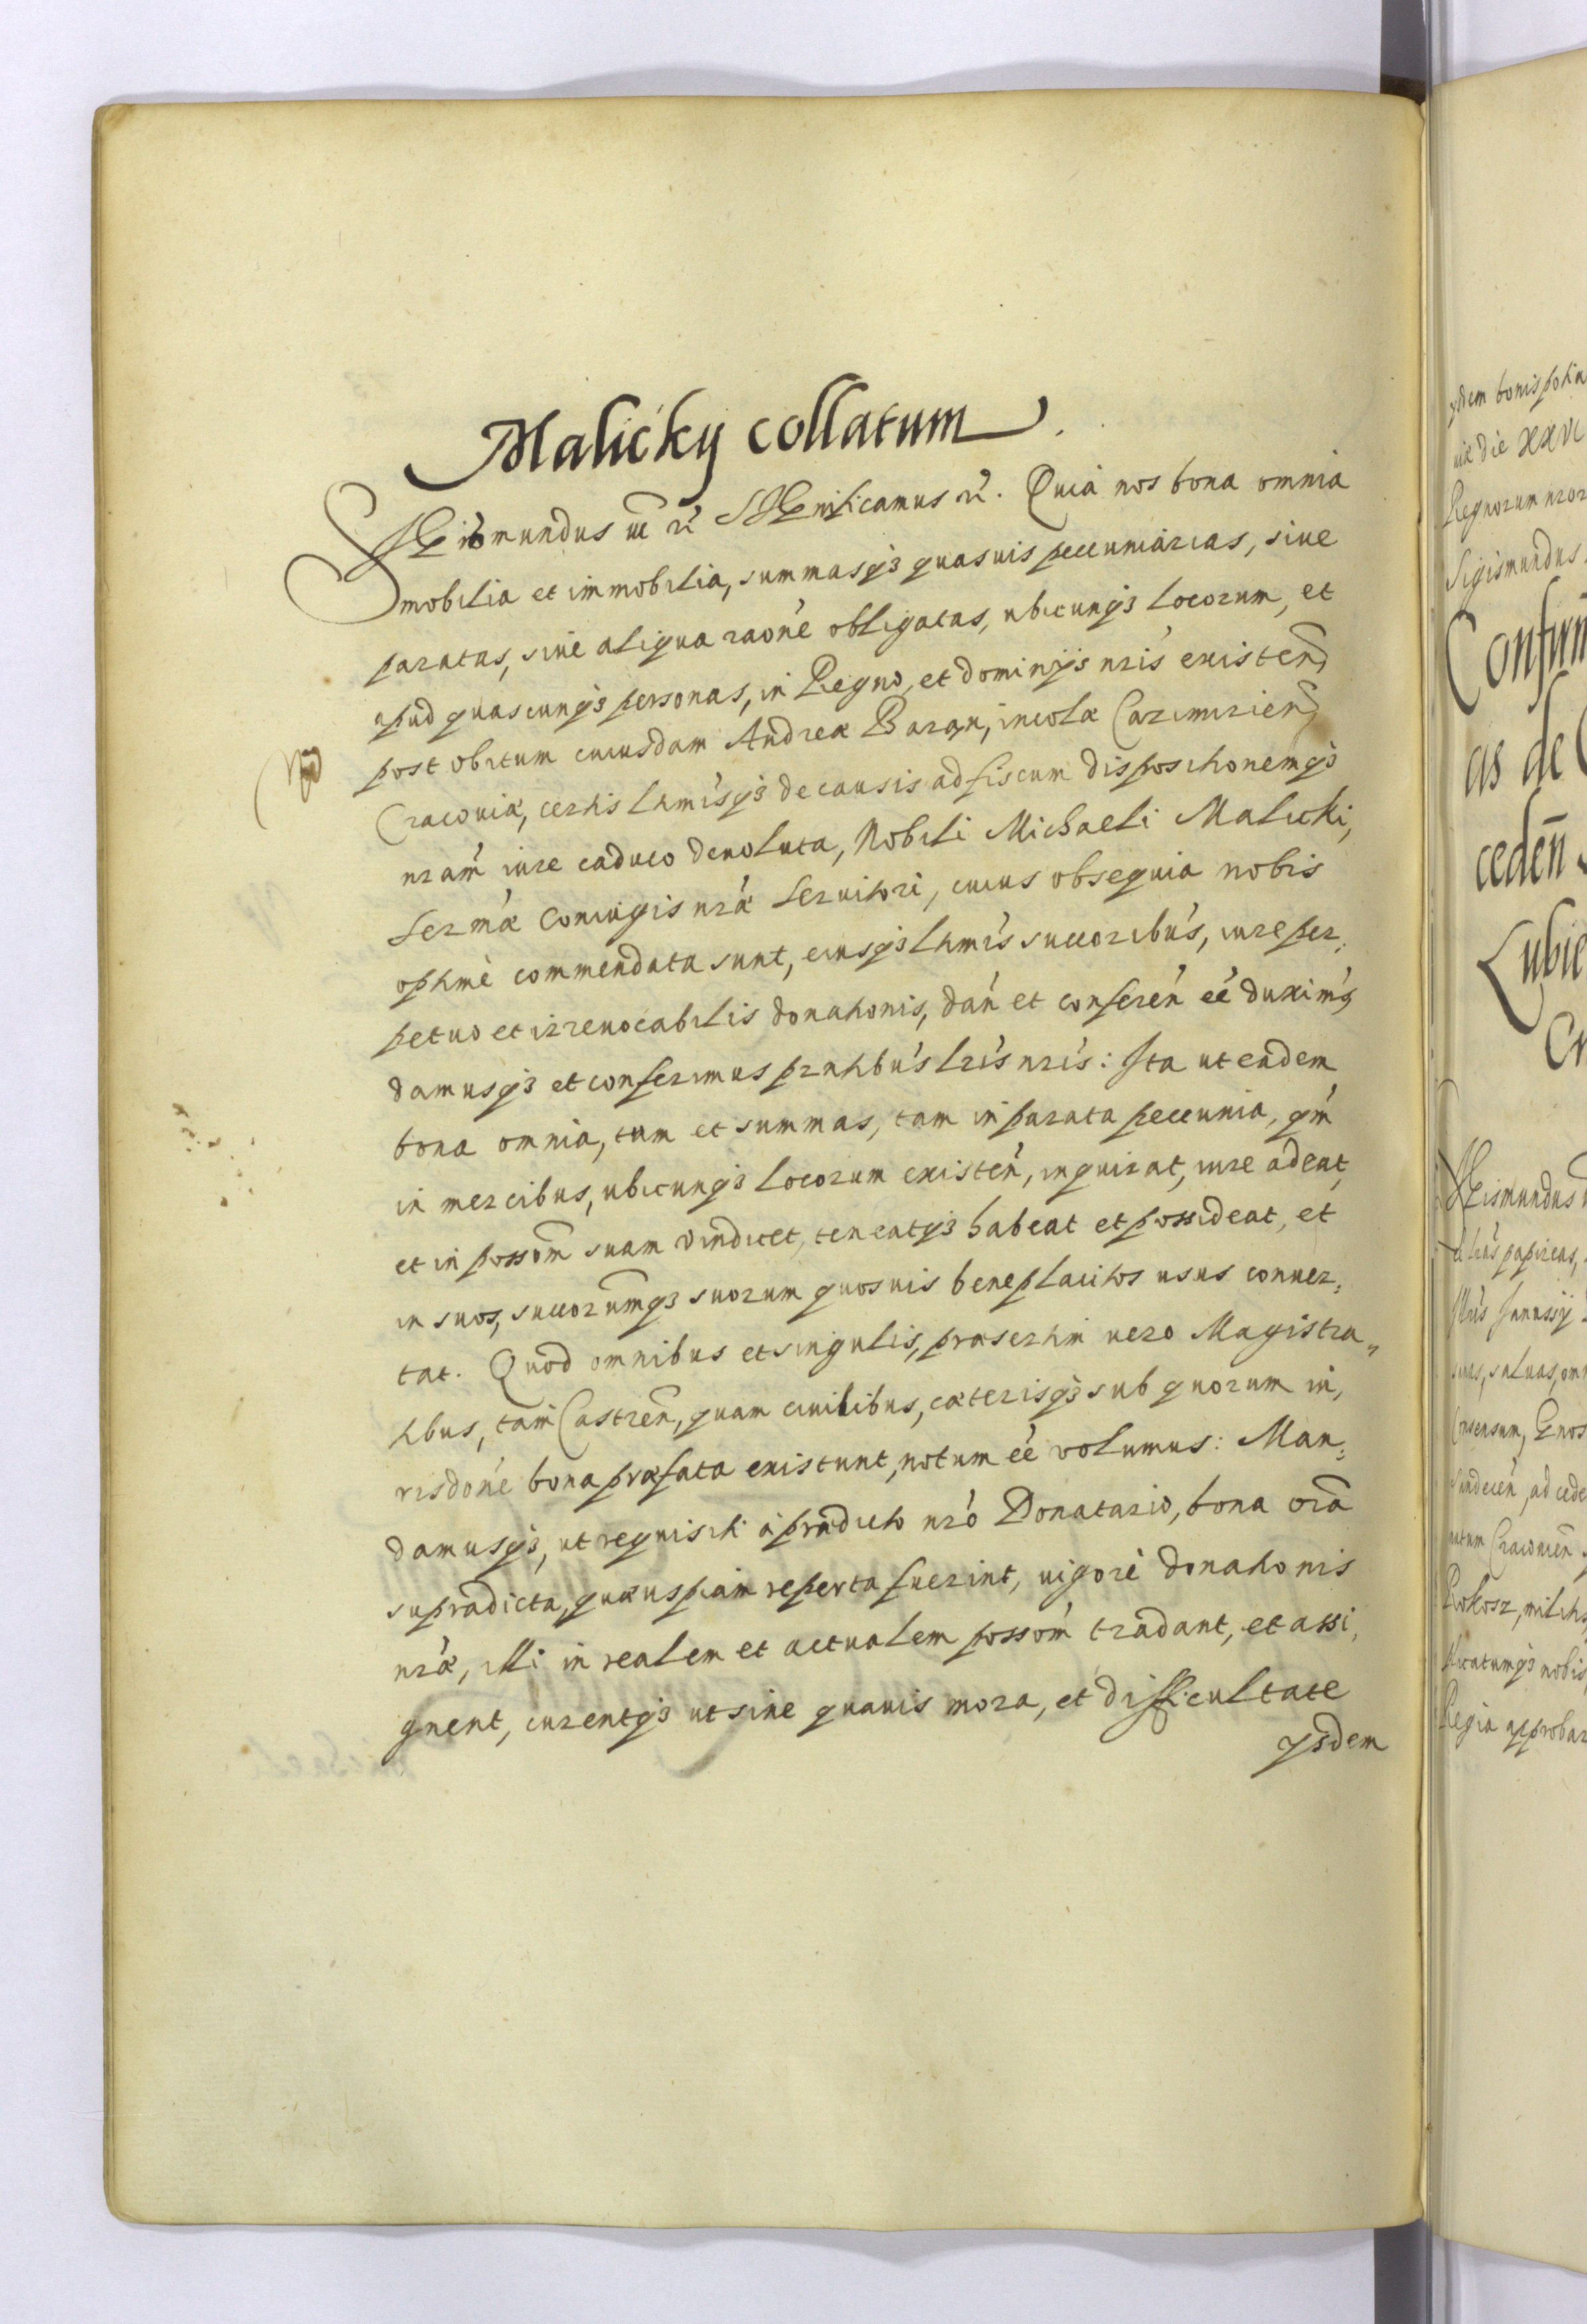 Malicky collatum.
Sigismundus etc. Significamus etc. Quia nos bona omnia
mobilia et immobilia, summasq3 quasuis pecuniarias, siue
paratas, siue aliqua raône obligatas, ubicunq3 locorum, et
apud quascunq3 personas, in Regno, et dominijs nris existeñ
post obitum cuiusdam Andreæ Baran, incolæ Cazimirieñ
Cracouiæ, certis ltmisq3 de causis ad fiscum dispositionemq3
nram iure caduco deuoluta, Nobili Michaeli Malicki,
Sermæ Coniugis nræ Seruitori, cuius obsequia nobis
optime commendata sunt, eiusq3 ltmis succoribus, iure per:
petuo et irreuocabilis donationis, dan et conferen eé duximus
damusq3 et conferimus prntibus lris nris: Ita ut eadem
bona omnia, tum et summas, tam in parata pecunia, qm
in mercibus, ubicunq3 locorum existen, inquirat, iure adeat,
et in possom suam vindicet, teneatq3 habeat et possideat, et
in suos, succorumq3 suorum quosuis beneplacitos usus conuer:
tat. Quod omnibus et singulis, præsertim uero Magistra„
tibus, tam Castreñ, quam ciuilibus, cæterisq3 sub quorum iu,
risdone bona præfata existunt, notum eé volumus: Man:
damusq3, ut requisiti à prædicto nro Donatario, bona oia
supradicta, quæuspiam reperta fuerint, uigore donationis
nræ, illi in realem et actualem possom tradant, et assi,
gnent, curentq3 ut sine quauis mora, et difficultate
ysdem
ysdem bonis potia
uiæ die XXVI
Regnorum nror
Sigismundus
Confirm
as de C
cedeñ
Lubie
Cr
Sigismundus
papireas,
Janussij
suas, saluas, om
Consensum,
Sandecen, ad cede
Cracouien
Rokosz, militis
nobis
Regia approbar